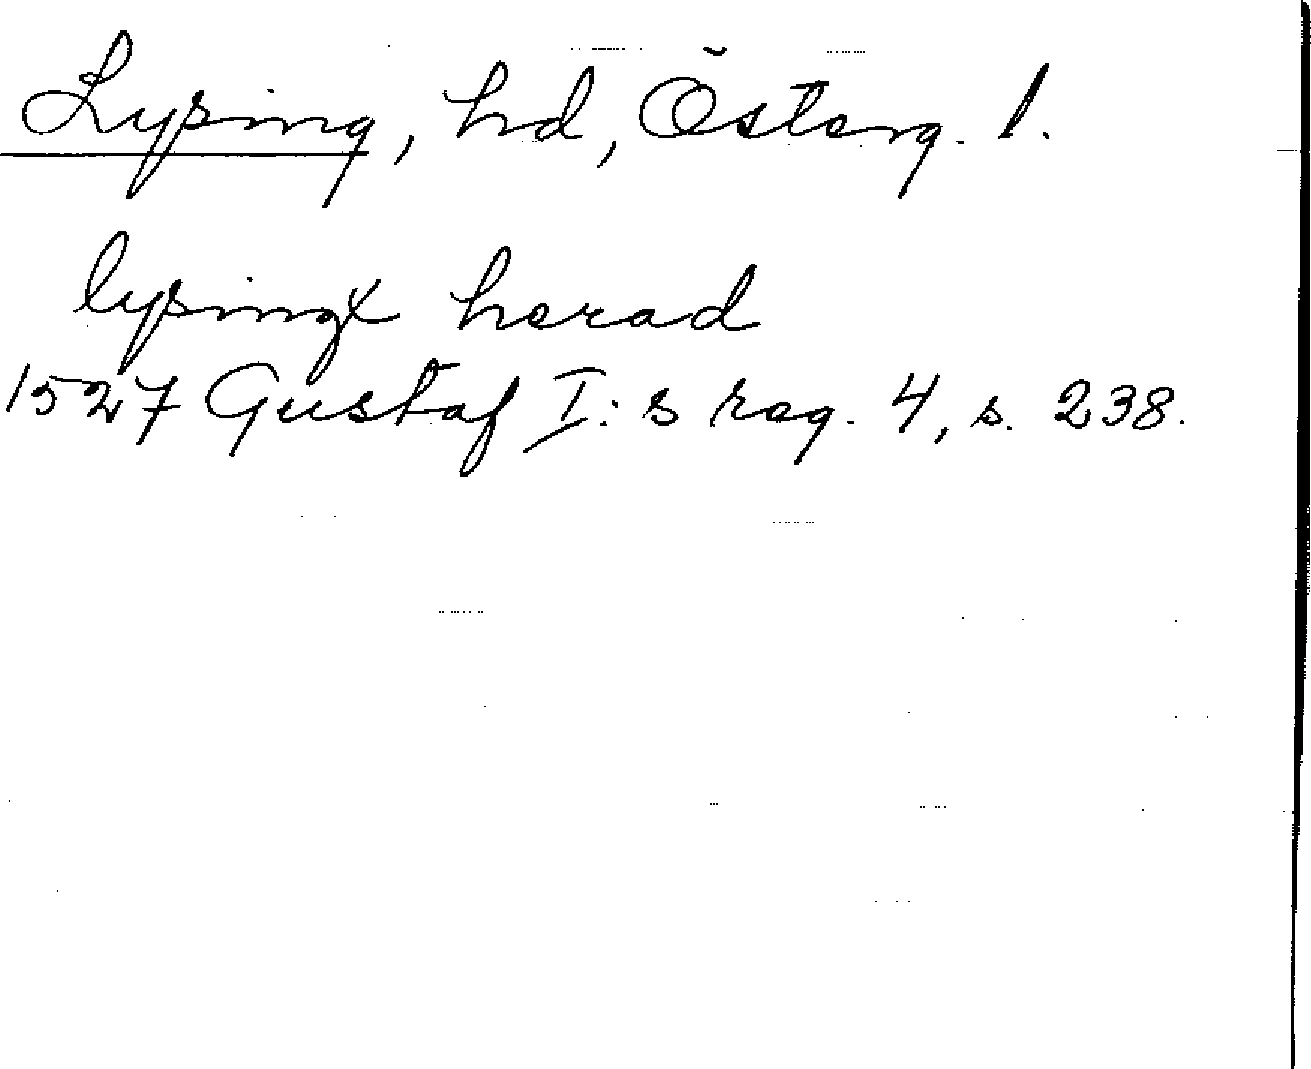 Lysing, hd, Österg. l.
lysingx herad
1527 Gustaf I:s reg. 4, s. 238.